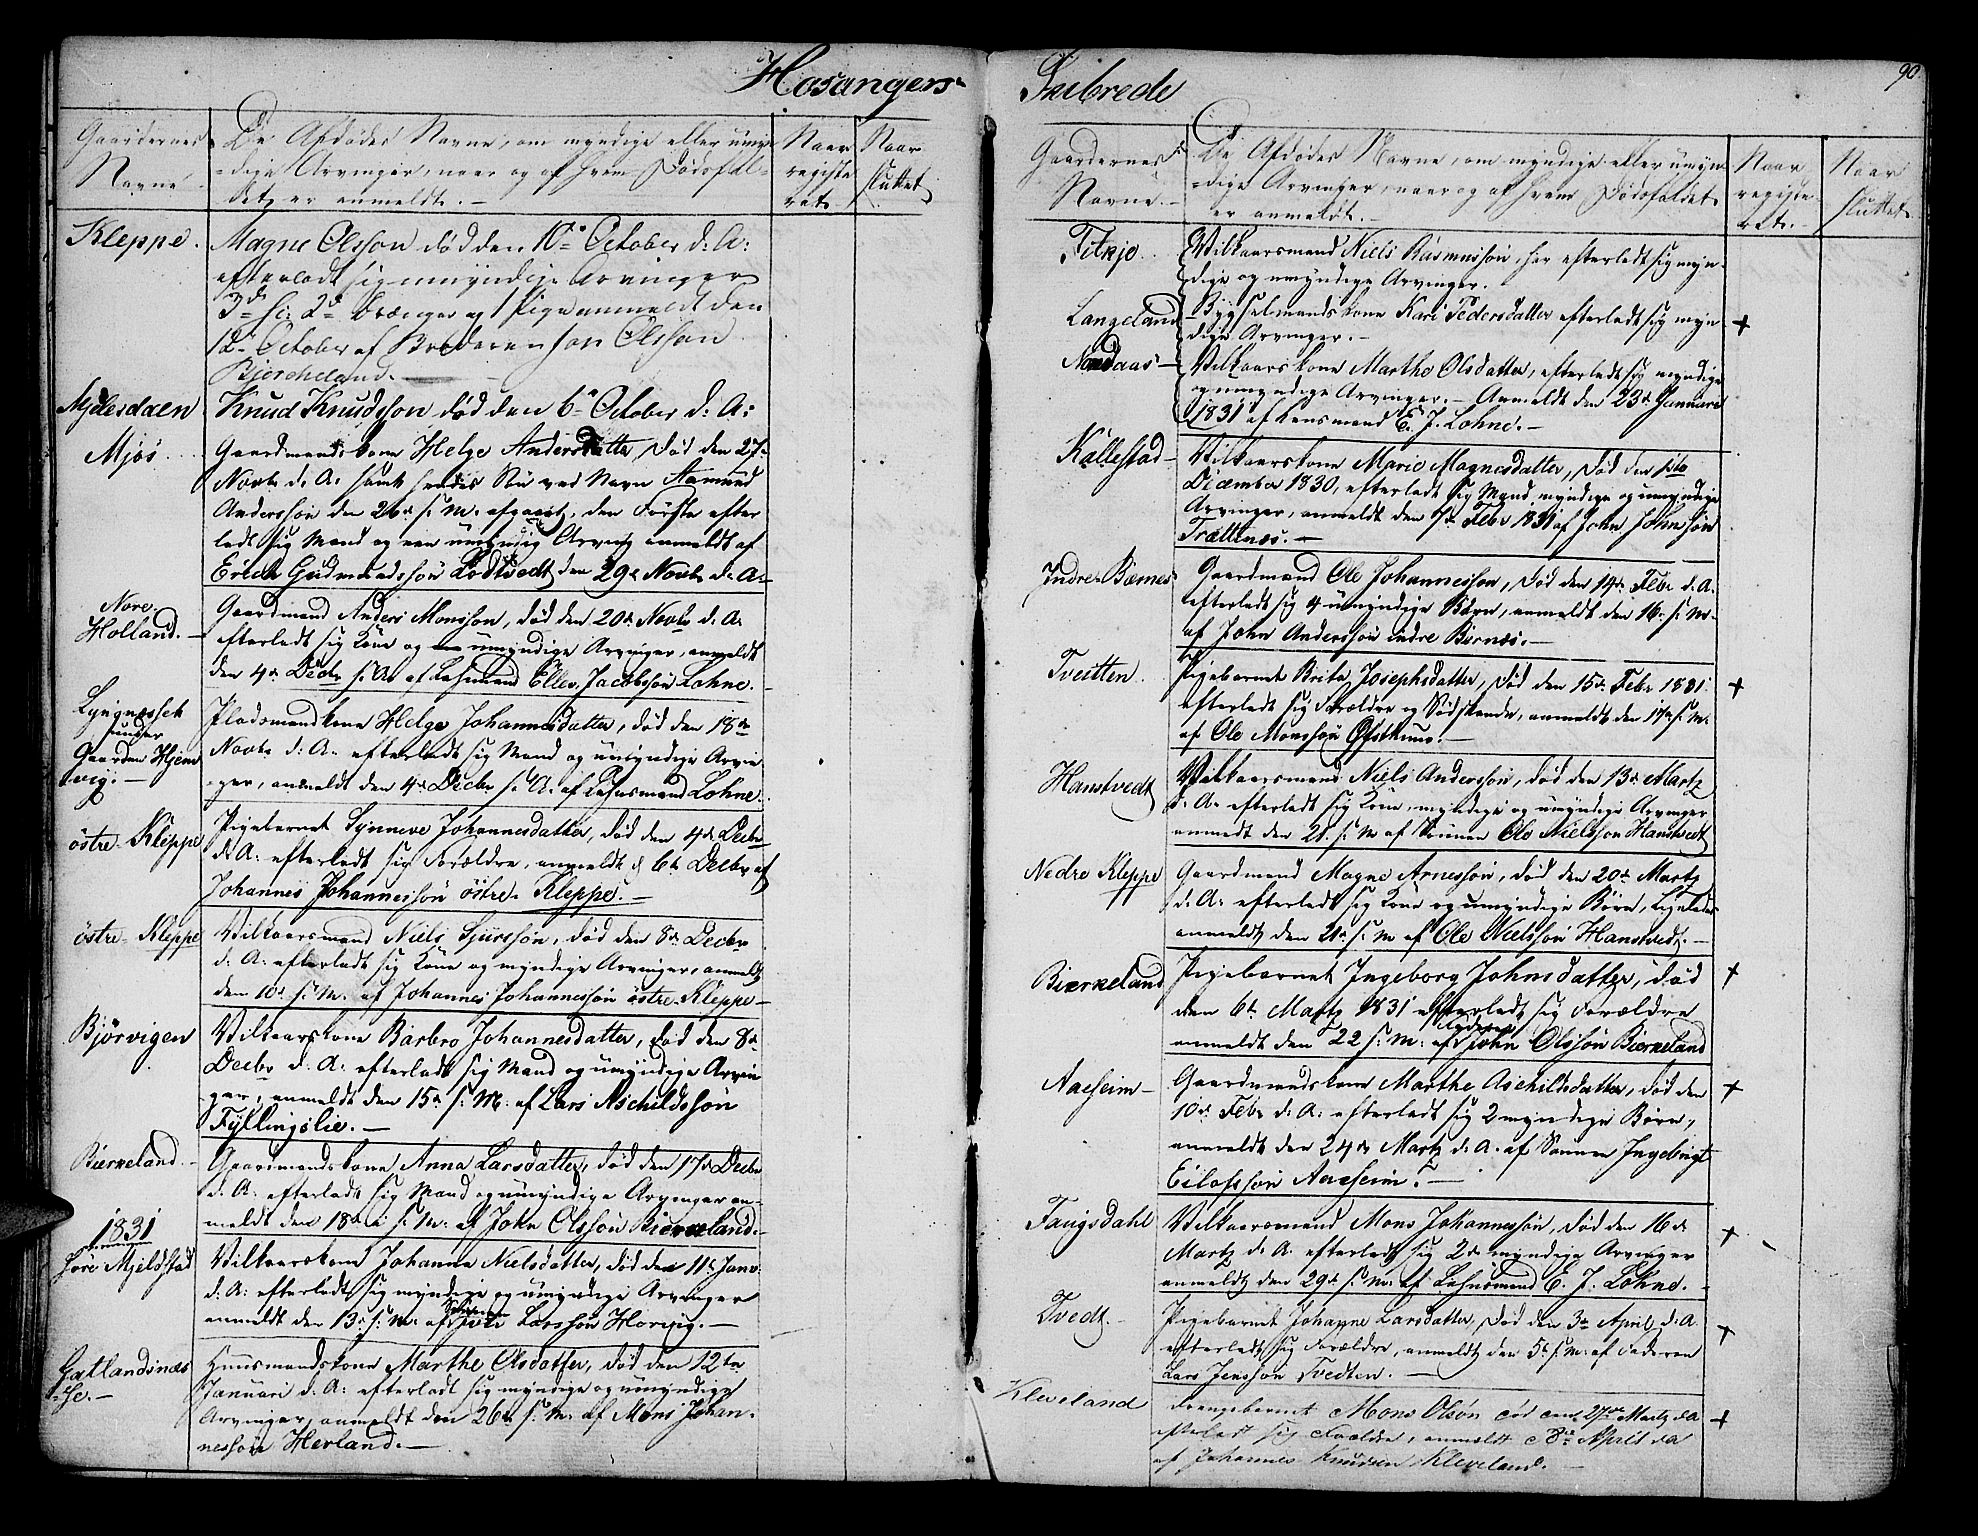 Hosangers-
Gaardernes
Navne
De Afdødes Navne, om myndige eller umyn-
-dige Arvinger, naar og af hvem Dødsfal-
det er anmeldt. -
Naar
registe
ret
Naar
sluttet
Kleppe.
Magne Olsson død den 10de October d: A:
efterladt sig umyndige Arvinger
3de sc: 2de Drenger og 1 Pige anmeldt den
12te October af Broderen Jon Olsson
Bjercheland. -
Mjelesdalen
Knud Knudsson død den 6te October d: A:
Mjøs
Gaardmands kone Helge Andersdatter, død den 27de
Novbr d. A: samt hendes Søn ved Navn Aamund
Anderssøn den 26de s: M. afgaaet, den første efter
ladt sig Mand og een umyndig Arving anmeldt af
Erich Gudmundssøn Lodtvedt den 29de Novbr d. A:-
Nore
Holland. -
Gaardmand Anders Monssøn, død den 20de Novbr d: A:
efterladt sig Kone og umyndige Arvinger, anmeldt
den 4de Decbr s: A: af Lehnsmand Ellev Jacobssøn Lohne. -
under
Gaarden Hjem
vig. -
Pladsmandkone Helge Johannesdatter, død den 18de
Novbr d: A: efterladt sig Mand og umyndige Arvin
-ger, anmeldt den 4de Decbr s: A: af Lehnsmand Lohne.
östre Kleppe
Pigebarnet Synneve Johannesdatter, død den 4de Decbr
d: A: efterladt sig Forældre, anmeldt d 6te Decbr af
Johannes Johannessøn östre Kleppe. -
östre Kleppe
Vilkaarsmand Niels Sjurssøn, død den 8de Decbr
d: A: efterladt sig Kone og myndige Arvinger, anmeldt
den 10de s: M. af Johannes Johannessøn östre Kleppe -
Bjørvigen
Vilkaarskone Barbro Johannesdatter, død den 8de
Decbr d: A: efterladt sig Mand og umyndige Arvin
ger, anmeldt den 15de s: M: af Lars Aschildssøn
Fyllingslie. -
Bierkeland. -
Gaardmandskone Anna Larsdatter, død den 17de Decbr
d: A: efterladt sig Mand og umyndige Arvinger an-
meldt den 18de s: M: af John Olssøn Bierkeland. -
1831
søre Mjeldstad
Vilkaarskone Johanna Nielsdatter, død den 11te Janv:
d: A: efterladt sig myndige og umyndige Arvinger
anmeldt den 13de s: M: af Larssøn Horvig. -
Gatlandsnæs
-se. -
Huusmandskone Marthe Olsdatter, død den 12te
Januari d: A: efterladt sig myndige og umyndige
Arvinger, anmeldt den 26de s: M: af Mons Johan-
nessøn Herland. -
Skibrede
90
Gaardernes
Navne. -
De Afdødes Navne, om myndige eller umyn
-dige Arvinger, naar og af hvem Dødsfaldet
er anmeldt. -
Naar
registe
ret.
Naar
sluttet
Titkjo.
Vilkaarsmand Niels Rasmussøn, har efterladt sig myn-
dige og umyndige Arvinger.
Langeland
Bygselmandskone Kari Pedersdatter efterladt sig myn
dige Arvinger. -
+
Nordaas -
Vilkaarskone Marthe Olsdatter, efterladt sig myndige
og umyndige Arvinger. - Anmeldt den 23de Januari
1831 af Lensmand E. J. Lohne. -
Kallestad -
Vilkaarskone Marie Magnesdatter, død den
December 1830, efterladt sig Mand, myndige og umyndige
Arvinger, anmeldt den 7de Febr 1831 af John Johnssøn
Trættenes. -
Indre Bernes
Gaardmand Ole Johannessøn, død den 14de Febr d. A.
efterladt sig 4 umyndige Børn, anmeldt den 16de s: M.
af John Anderssøn indre Bernes. -
Tveitten.
Pigebarnet Brita Josephsdatter, død den 15de Febr 1831
efterladt sig Forældre og Sødskende, anmeldt den 17de s: M:
af Ole Monssøn -
+
Hanstvedt
Vilkaarsmand Niels Anderssøn, død den 13de Martz
d: A: efterladt sig Kone, myndige og umyndige Arvinger
anmeldt den 21de s: M af Sønnen Ole Nielssøn Hanstvedt
Nedre Kleppe
Gaardmand Magne Arnessøn, død den 20de Martz
d: A: efterladt sig Kone og umyndige Børn, ligeledes
anmeldt den 21de s: M af Ole Nielssøn Hanstvedt. -
Bierkeland
Pigebarnet Ingeborg Johnsdatter, død
den 6te Martz 1831 efterladt sig Forældre
anmeldt den 22 s: M: af Faderen John Olssøn Bierkeland
+
Aaeseim -
Gaardmandskone Marthe Aschildsdatter, død den
10de Febr d: A: efterladt sig 2 myndige Børn,
anmeldt den 24de Martz d: A. af Sønnen Ingebrigt
Eilofssøn Aaeseim. -
+
Faugsdahl
Vilkaarsmand Mons Johannessøn, død den 16de
Martz d: A. efterladt sig 2de myndige Arvinger
anmeldt den 29de s: M: af Lehnsmand E. J. Lohne. -
+
Tvedt. -
Pigebarnet Johanne Larsdatter, død den 3de April d. A
efterladt sig Forældre, anmeldt den 5te s: M: af Faderen
Lars Jenssøn Tvedten. -
+
Kleveland
Drengebarnet Mons Olsøn død den 27de Martz d A
efterladt sig Forældre, anmeldt d 8de April d A
af Johannes Knudsen Kleveland. -
+